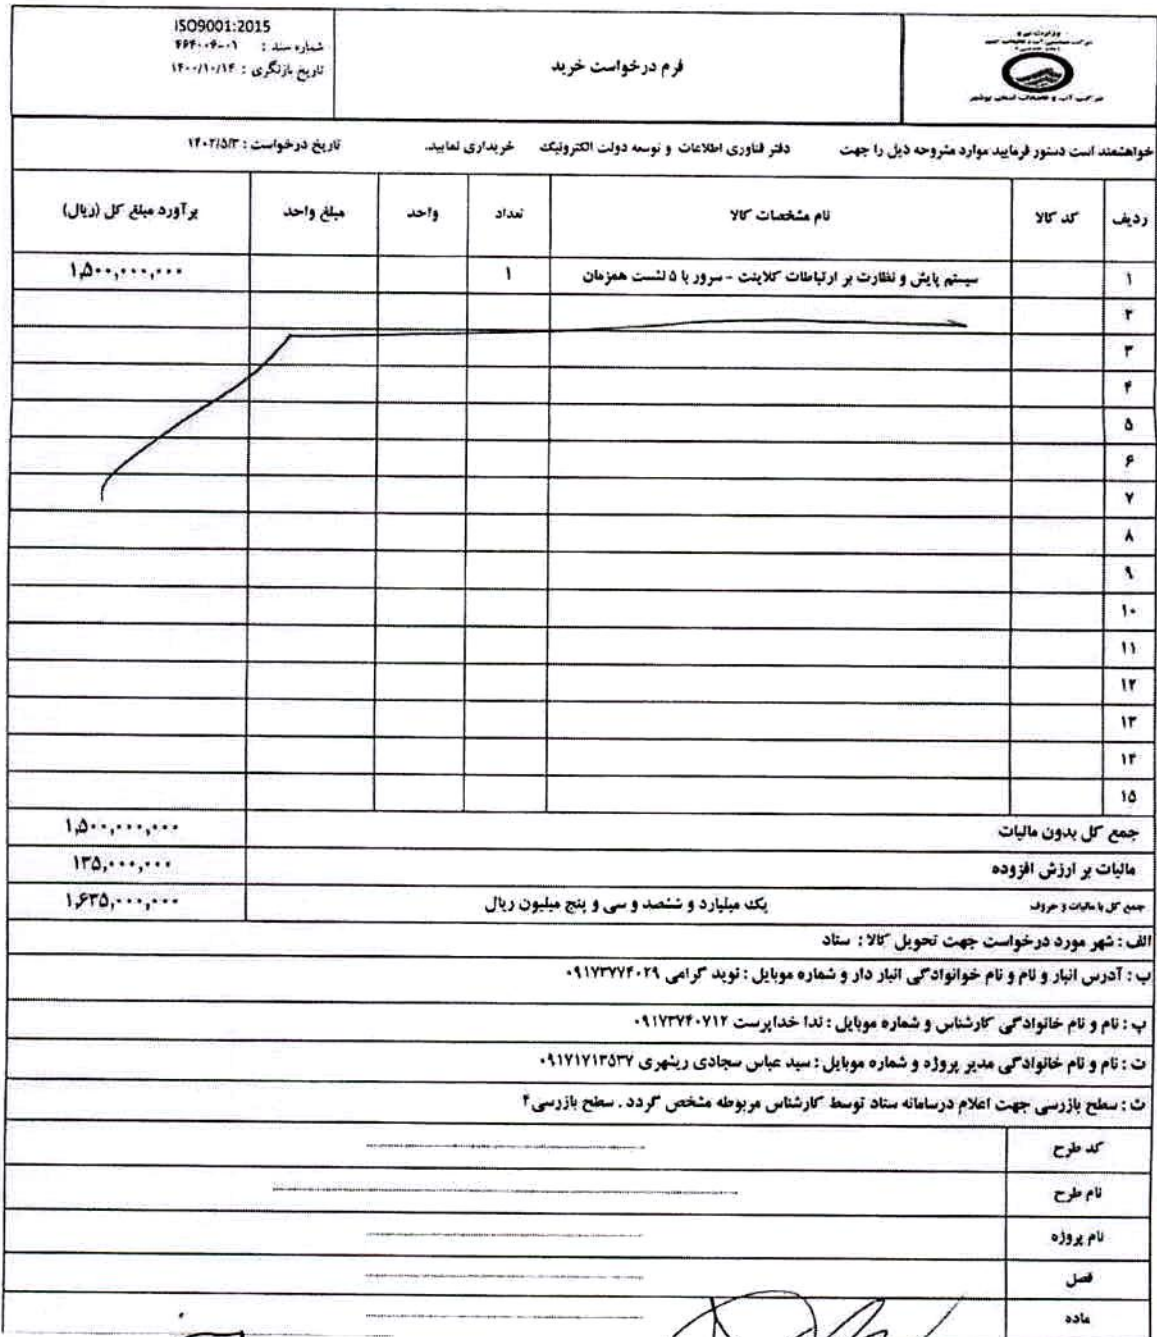 ISO9001:2015
شماره سند : ۴۶۴۰۰۶-۰۱
تاریخ بازنگری : ۱۴۰۰/۱۰/۱۴
فرم درخواست خرید
وزارت نیرو
شرکت آب و فاضلاب استان بوشهر
خواهشمند است دستور فرمایید موارد مشروحه ذیل را جهت دفتر فناوری اطلاعات و توسعه دولت الکترونیک خریداری نمایید. تاریخ درخواست : ۱۴۰۲/۵/۳
ردیف کد کالا نام مشخصات کالا تعداد واحد مبلغ واحد برآورد مبلغ کل (ریال)
۱ سیستم پایش و نظارت بر ارتباطات کلاینت - سرور با ۵ نشست همزمان ۱ ۱,۵۰۰,۰۰۰,۰۰۰
۲
۳
۴
۵
۶
۷
۸
۹
۱۰
۱۱
۱۲
۱۳
۱۴
۱۵
جمع کل بدون مالیات ۱,۵۰۰,۰۰۰,۰۰۰
مالیات بر ارزش افزوده ۱۳۵,۰۰۰,۰۰۰
جمع کل با مالیات و حروف یک میلیارد و ششصد و سی و پنج میلیون ریال ۱,۶۳۵,۰۰۰,۰۰۰
الف : شهر مورد درخواست جهت تحویل کالا : ستاد
ب : آدرس انبار و نام و نام خوانوادگی انبار دار و شماره موبایل : نوید گرامی ۰۹۱۷۳۷۷۴۰۲۹
پ : نام و نام خانوادگی کارشناس و شماره موبایل : ندا خداپرست ۰۹۱۷۳۷۴۰۷۱۲
ت : نام و نام خانوادگی مدیر پروژه و شماره موبایل : سید عباس سجادی ریشهری ۰۹۱۷۱۷۱۳۵۳۷
ث : سطح بازرسی جهت اعلام درسامانه ستاد توسط کارشناس مربوطه مشخص گردد . سطح بازرسی۴
کد طرح
نام طرح
نام پروژه
فصل
ماده